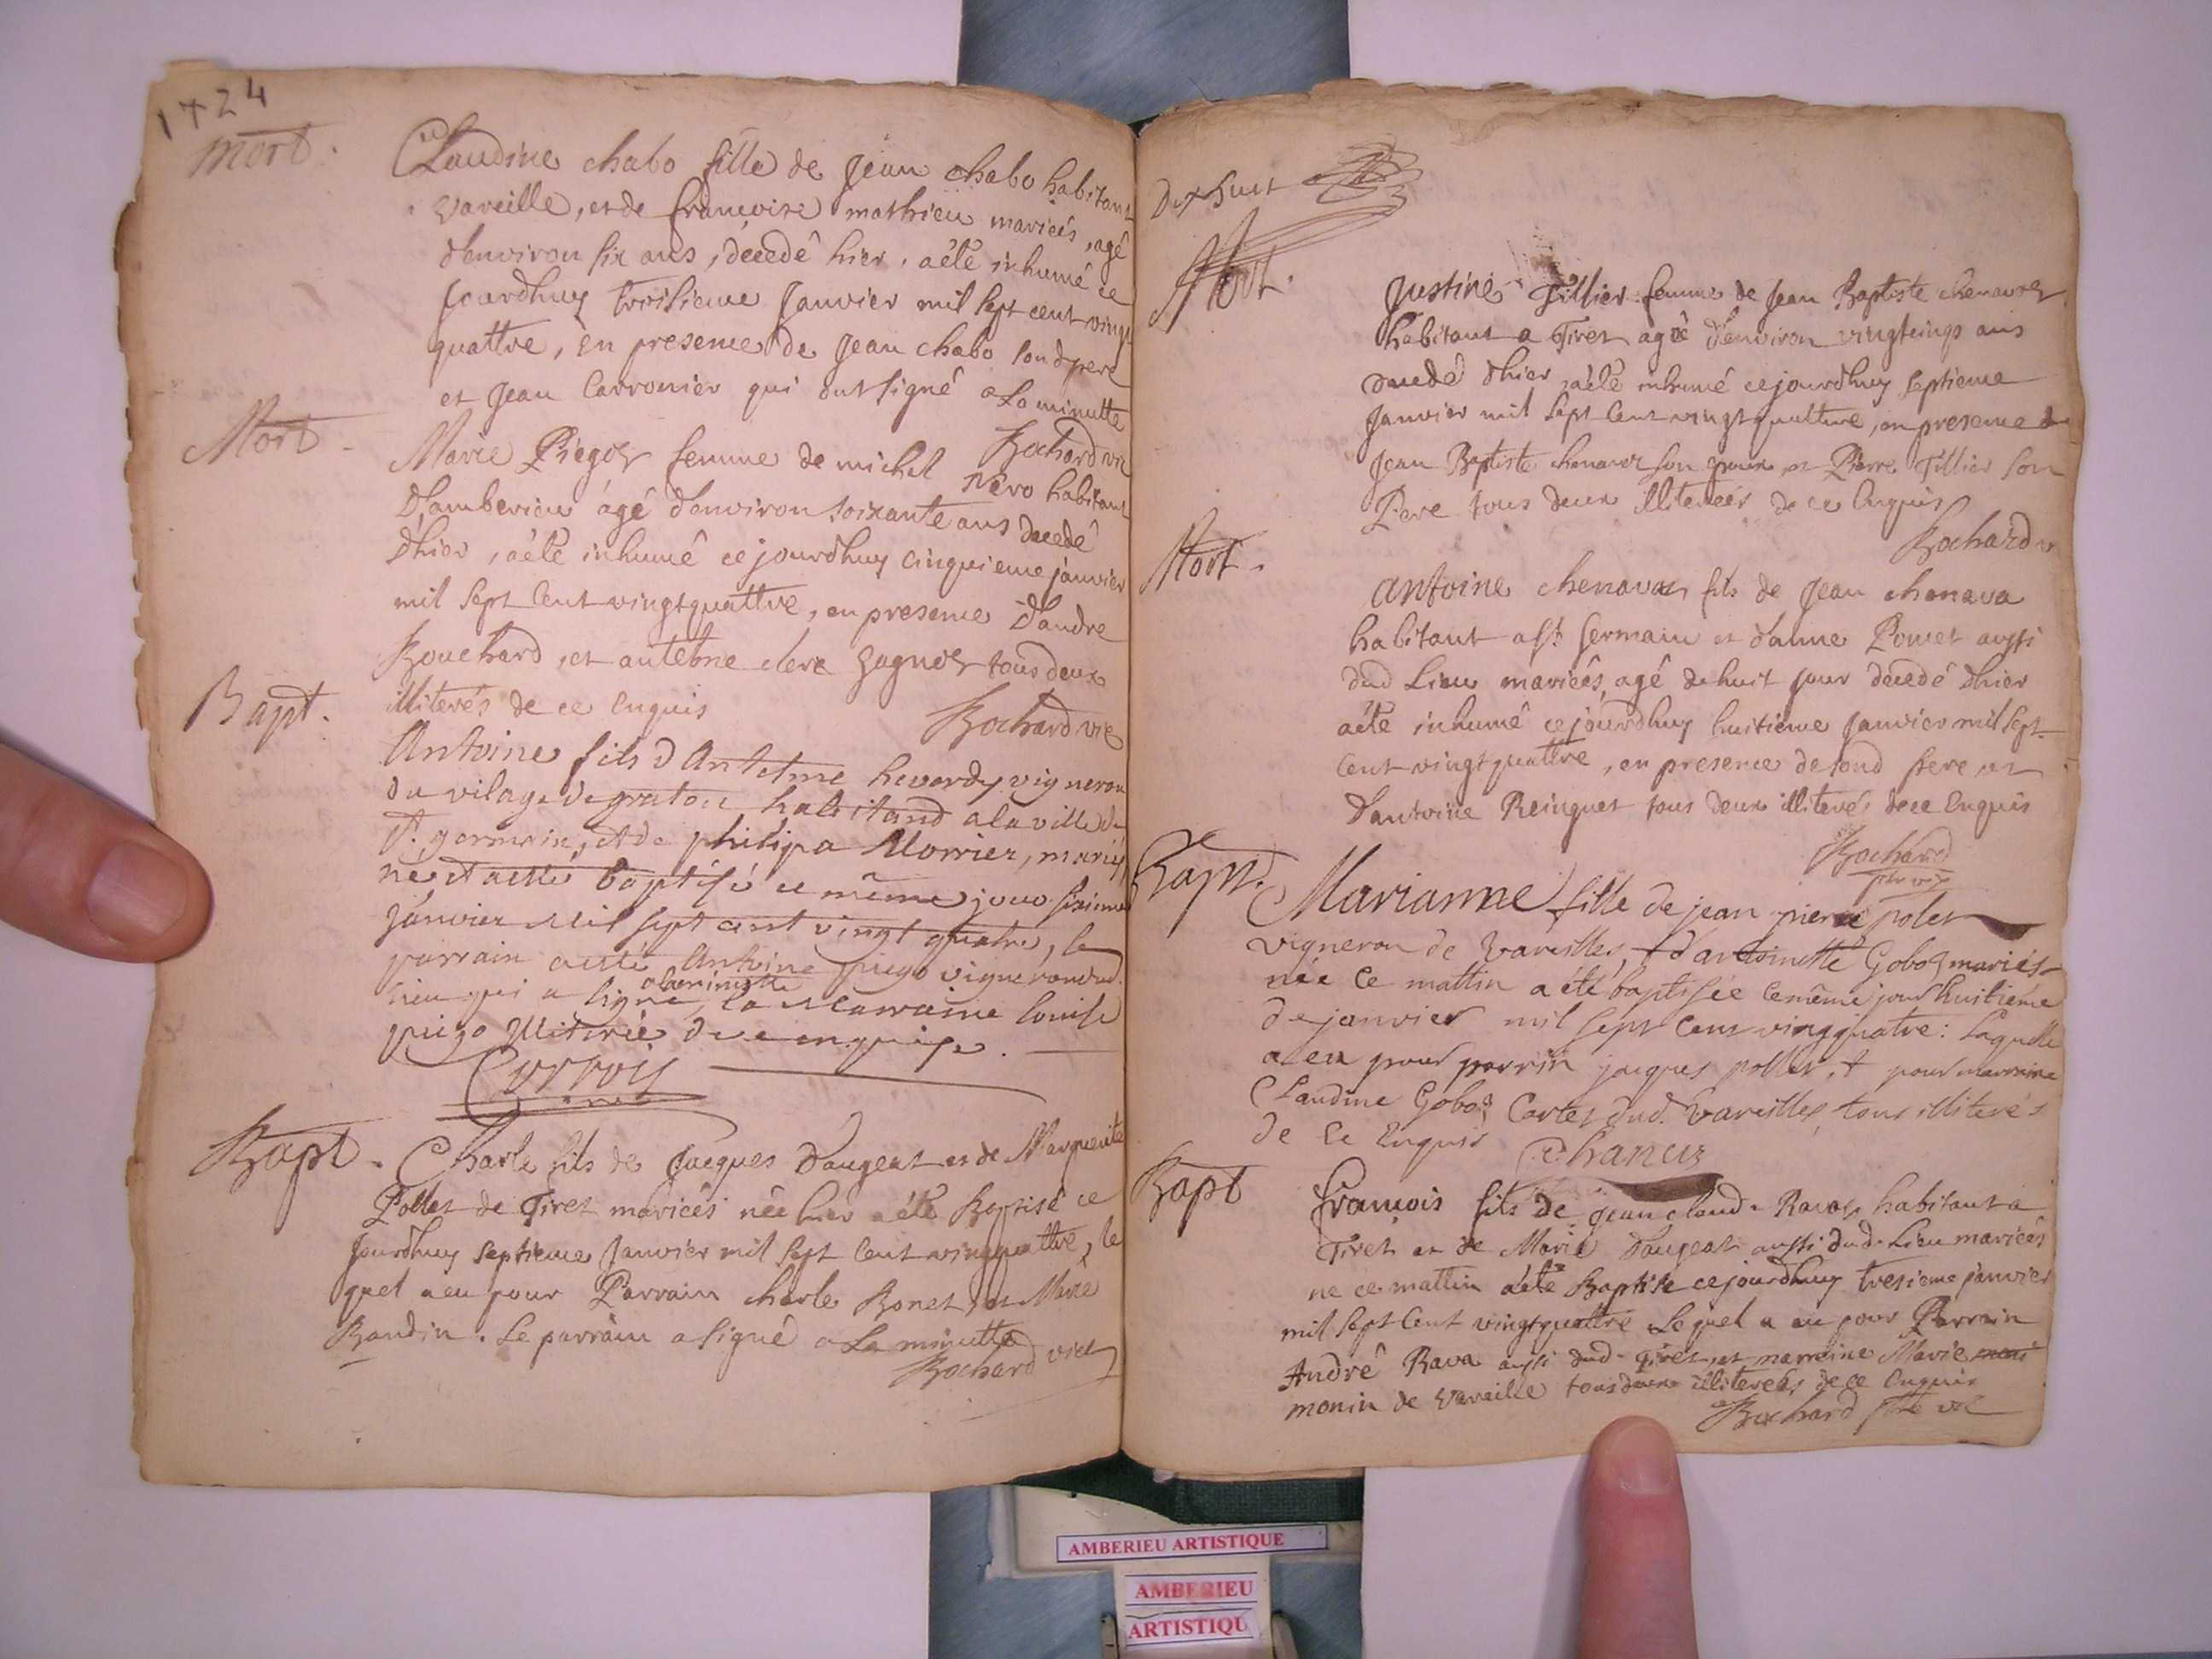 1724
Mort.
Claudine chabo fille de Jean chabo habitant
vareille, et de francoise mathieu mariés, agé
d'environ six ans, decedé hier, a été inhumé ce
Jourdhuy troisieme Janvier mil sept cent vingt
quattre, en presence de Jean chabo sond pere
et Jean Carronier qui ont signé a La minutte
Rochard vic
Mort
Marie Piegoz femme de michel Nero habitant
D'amberieu agé d'environ soixante ans decedé
Dhier, a été inhumé ce jourdhuy cinquieme janvier
mil sept Cent vingtquattre, en presence D'andre
Bouchard, et antelme clerc gagnoz tous deux
illiterés de ce Enquis
Rochard vic
Bapt.
Antoine fils d'Antelme hevordy vigneron
du vilage de graton habitand a la ville de
St. germain, et de philipa Morrier, mariés,
né et a esté baptisé ce même jour sixieme
janvier mil sept cent vingt quatre, le
parrain a esté Antoine piego vigneron dud.
lieu qui a signé a la minutte, la Marraine louise
piego illiterée de ce enquise.
Bapt.
Charle fils de Jacques Daugeat et de Marguerite
Pollet de Tiret mariés née hier a été Baptisé ce
Jourdhuy septieme Janvier mil sept Cent vingtquattre, le
quel a eu pour Parrain charle Bonet, et Marie
Baudin. Le parrain a signé a La minutte
Rochard vic
Dixhuit
Mort.
Justine Tillier femme de Jean Baptiste chenavaz
habitant a Tiret agée d'environ vingtcinq ans
decedé dhier, a été inhumé ce jourdhuy septieme
Janvier mil sept Cent vingtquattre, en presence de
Jean Baptiste chenavaz son epoux et Pierre Tillier son
Pere tous deux illiterés de ce Enquis
Rochard v
Mort.
Antoine chenavaz fils de Jean chenava
habitant a St. Germain et d'anne Poncet aussi
dud Lieu mariés, agé de huit jour decedé dhier
a été inhumé ce jourdhuy huitieme Janvier mil sept
Cent vingtquattre, en presence de sond pere, et
D'antoine Reinguet tous deux illiterés de ce Enquis
Rochard
Bapt.
Marianne fille de jean pierre polet
vigneron de Vareilles, & d'antoinette Goboz mariés
née ce mattin a été baptisée le même jour huitième
de janvier mil sept Cens vingquatre: Laquelle
a eu pour parrin jacques pollet, & pour marraine
Claudine Goboz Cartet dud. Vareilles, tous illiterés
de ce Enquis
Chaneuz
Bapt
francois fils de jean claude Ravaz habitant a
Tiret et de Marie Daugeat aussi dud. Lieu mariés
ne ce mattin a été Baptise ce jourdhuy tresieme janvier
mil sept Cent vingtquattre Lequel a eu pour Parrain
André Rava aussi dud. Tiret, et marraine Marie
monin de Vareille tous deux illiterés de ce Enquis
Rochard ptre vic
AMBERIEU ARTISTIQUE
AMBERIEU
ARTISTIQU